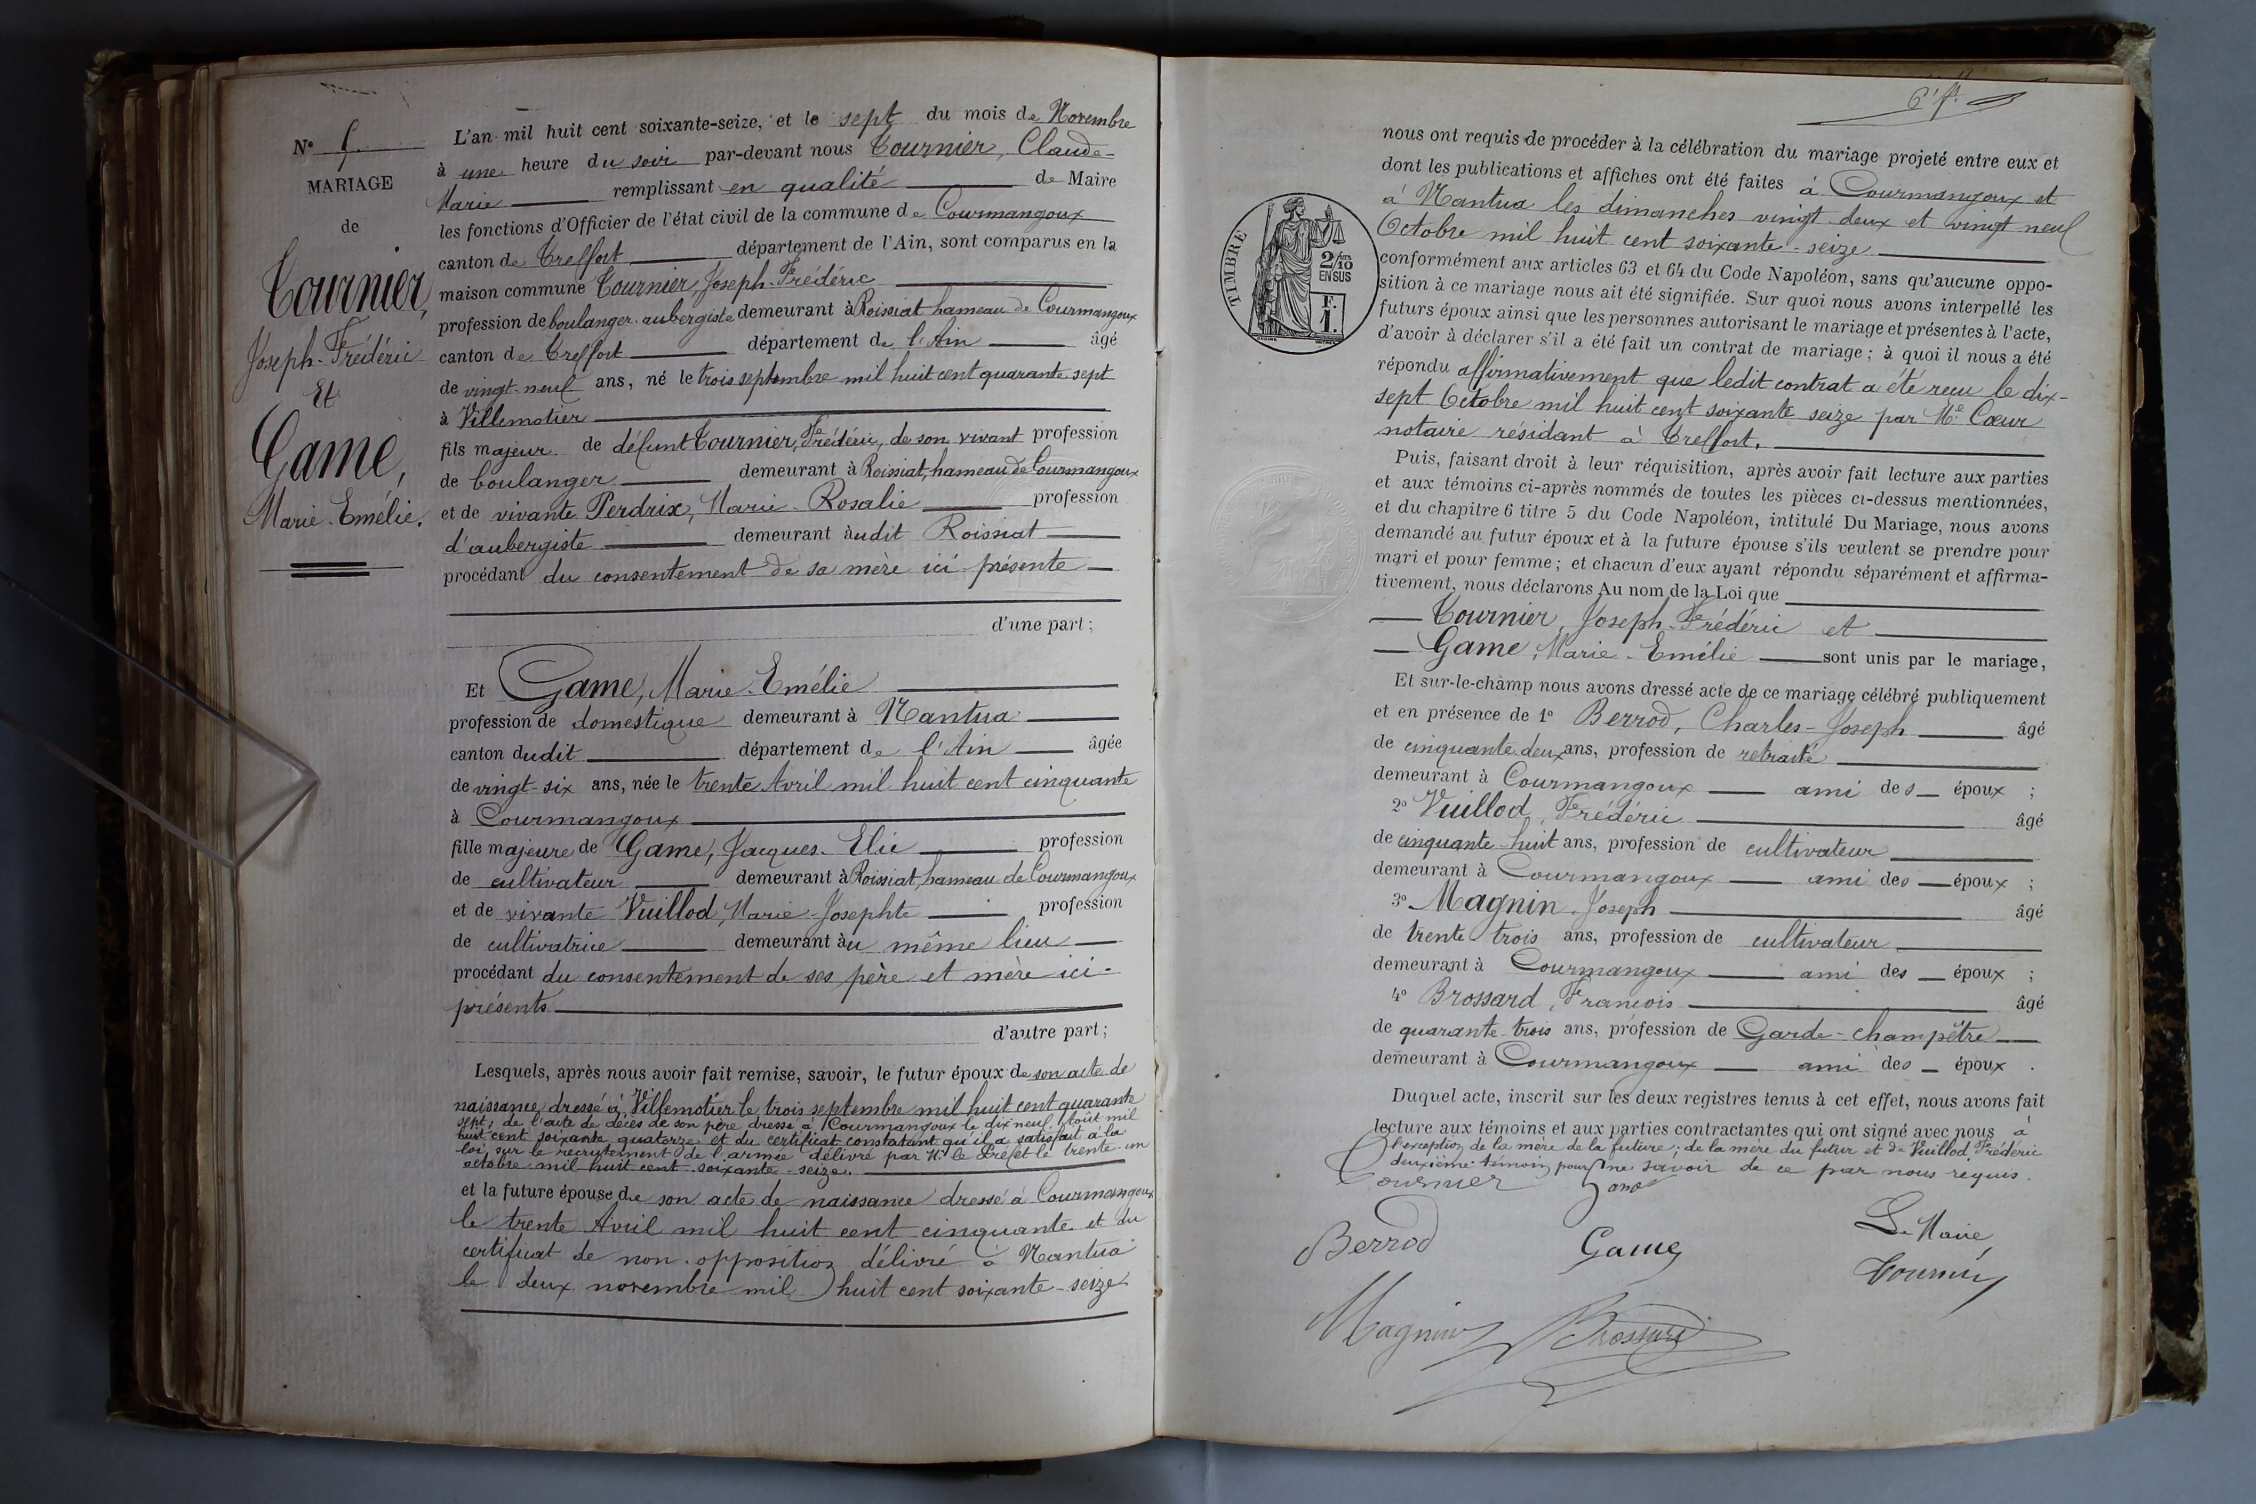 Nº
MARIAGE
de
Tournier,
Joseph-Frédéric
Et
Game,
Marie-Emélie.
L'an mil huit cent soixante-seize, et le sept du mois de Novembre
à une heure du soir par-devant nous Tournier, Claude-
Marie remplissant en qualité de Maire
les fonctions d'Officier de l'état civil de la commune de Courmangoux
canton de Treffort département de l'Ain, sont comparus en la
maison commune Tournier, Joseph-Frédéric
profession de boulanger-aubergiste demeurant à Roissiat hameau de Courmangoux
canton de Treffort département de l'Ain âgé
de vingt-neuf ans, né le trois septembre mil huit cent quarante sept
à Villemotier
fils majeur de défunt Tournier, Frédéric, de son vivant profession
de boulanger demeurant à Roissiat, hameau de Courmangoux
et de vivante Perdrix, Marie-Rosalie profession
d'aubergiste demeurant àudit Roissiat
procédant du consentement de sa mère ici présente
d'une part;
Et Game, Marie-Emélie
profession de domestique demeurant à Nantua
canton dudit département de l'Ain âgée
de vingt-six ans, née le trente Avril mil huit cent cinquante
à Courmangoux
fille majeure de Game, Jacques-Elie profession
de cultivateur demeurant à Roissiat, hameau de Courmangoux
et de vivante Vuillod, Marie-Josephte profession
de cultivatrice demeurant àu même lieu
procédant du consentement de ses père et mère ici-
présents
d'autre part;
Lesquels, après nous avoir fait remise, savoir, le futur époux de son acte de
naissance dressé à Villemotier le trois septembre mil huit cent quarante
sept; de l'acte de décès de son père dressé à Courmangoux le dix neuf Août mil
huit cent soixante quatorze et du certificat constatant qu'il a satisfait à la
loi sur le recrutement de l'armée délivré par Mr le Préfet le trente-un
octobre mil huit cent soixante-seize.
et la future épouse de son acte de naissance dressé à Courmangoux
le trente Avril mil huit cent cinquante et du
certificat de non-opposition délivré à Nantua
le deux novembre mil huit cent soixante-seize
nous ont requis de procéder à la célébration du mariage projeté entre eux et
dont les publications et affiches ont été faites à Courmangoux et
à Nantua les dimanches vingt-deux et vingt neuf
Octobre mil huit cent soixante-seize
conformément aux articles 63 et 64 du Code Napoléon, sans qu'aucune oppo-
sition à ce mariage nous ait été signifiée. Sur quoi nous avons interpellé les
futurs époux ainsi que les personnes autorisant le mariage et présentes à l'acte,
d'avoir à déclarer s'il a été fait un contrat de mariage; à quoi il nous a été
répondu affirmativement que ledit contrat a été reçu le dix-
sept Octobre mil huit cent soixante seize par Me Cœur
notaire résidant à Treffort.
TIMBRE
2/10
EN SUS
F.
1.
Puis, faisant droit à leur réquisition, après avoir fait lecture aux parties
et aux témoins ci-après nommés de toutes les pièces ci-dessus mentionnées,
et du chapitre 6 titre 5 du Code Napoléon, intitulé Du Mariage, nous avons
demandé au futur époux et à la future épouse s'ils veulent se prendre pour
mari et pour femme; et chacun d'eux ayant répondu séparément et affirma-
tivement, nous déclarons Au nom de la Loi que
Tournier, Joseph-Frédéric et
Game, Marie-Emélie sont unis par le mariage,
Et sur-le-champ nous avons dressé acte de ce mariage célébré publiquement
et en présence de 1º Berrod, Charles-Joseph âgé
de cinquante deux ans, profession de retraité
demeurant à Courmangoux ami des époux ;
2º Vuillod, Frédéric âgé
de cinquante-huit ans, profession de cultivateur
demeurant à Courmangoux ami des époux ;
3º Magnin, Joseph âgé
de trente trois ans, profession de cultivateur
demeurant à Courmangoux ami des époux ;
4º Brossard, François âgé
de quarante-trois ans, profession de Garde-champêtre
demeurant à Courmangoux ami des époux .
Duquel acte, inscrit sur les deux registres tenus à cet effet, nous avons fait
lecture aux témoins et aux parties contractantes qui ont signé avec nous à
l'exception de la mère de la future; de la mère du futur et de Vuillod, Frédéric
deuxième témoin pour ne savoir de ce par nous requis.
Tournier
Berrod
Game
Le Maire,
Tournier
Magnin
Brossard